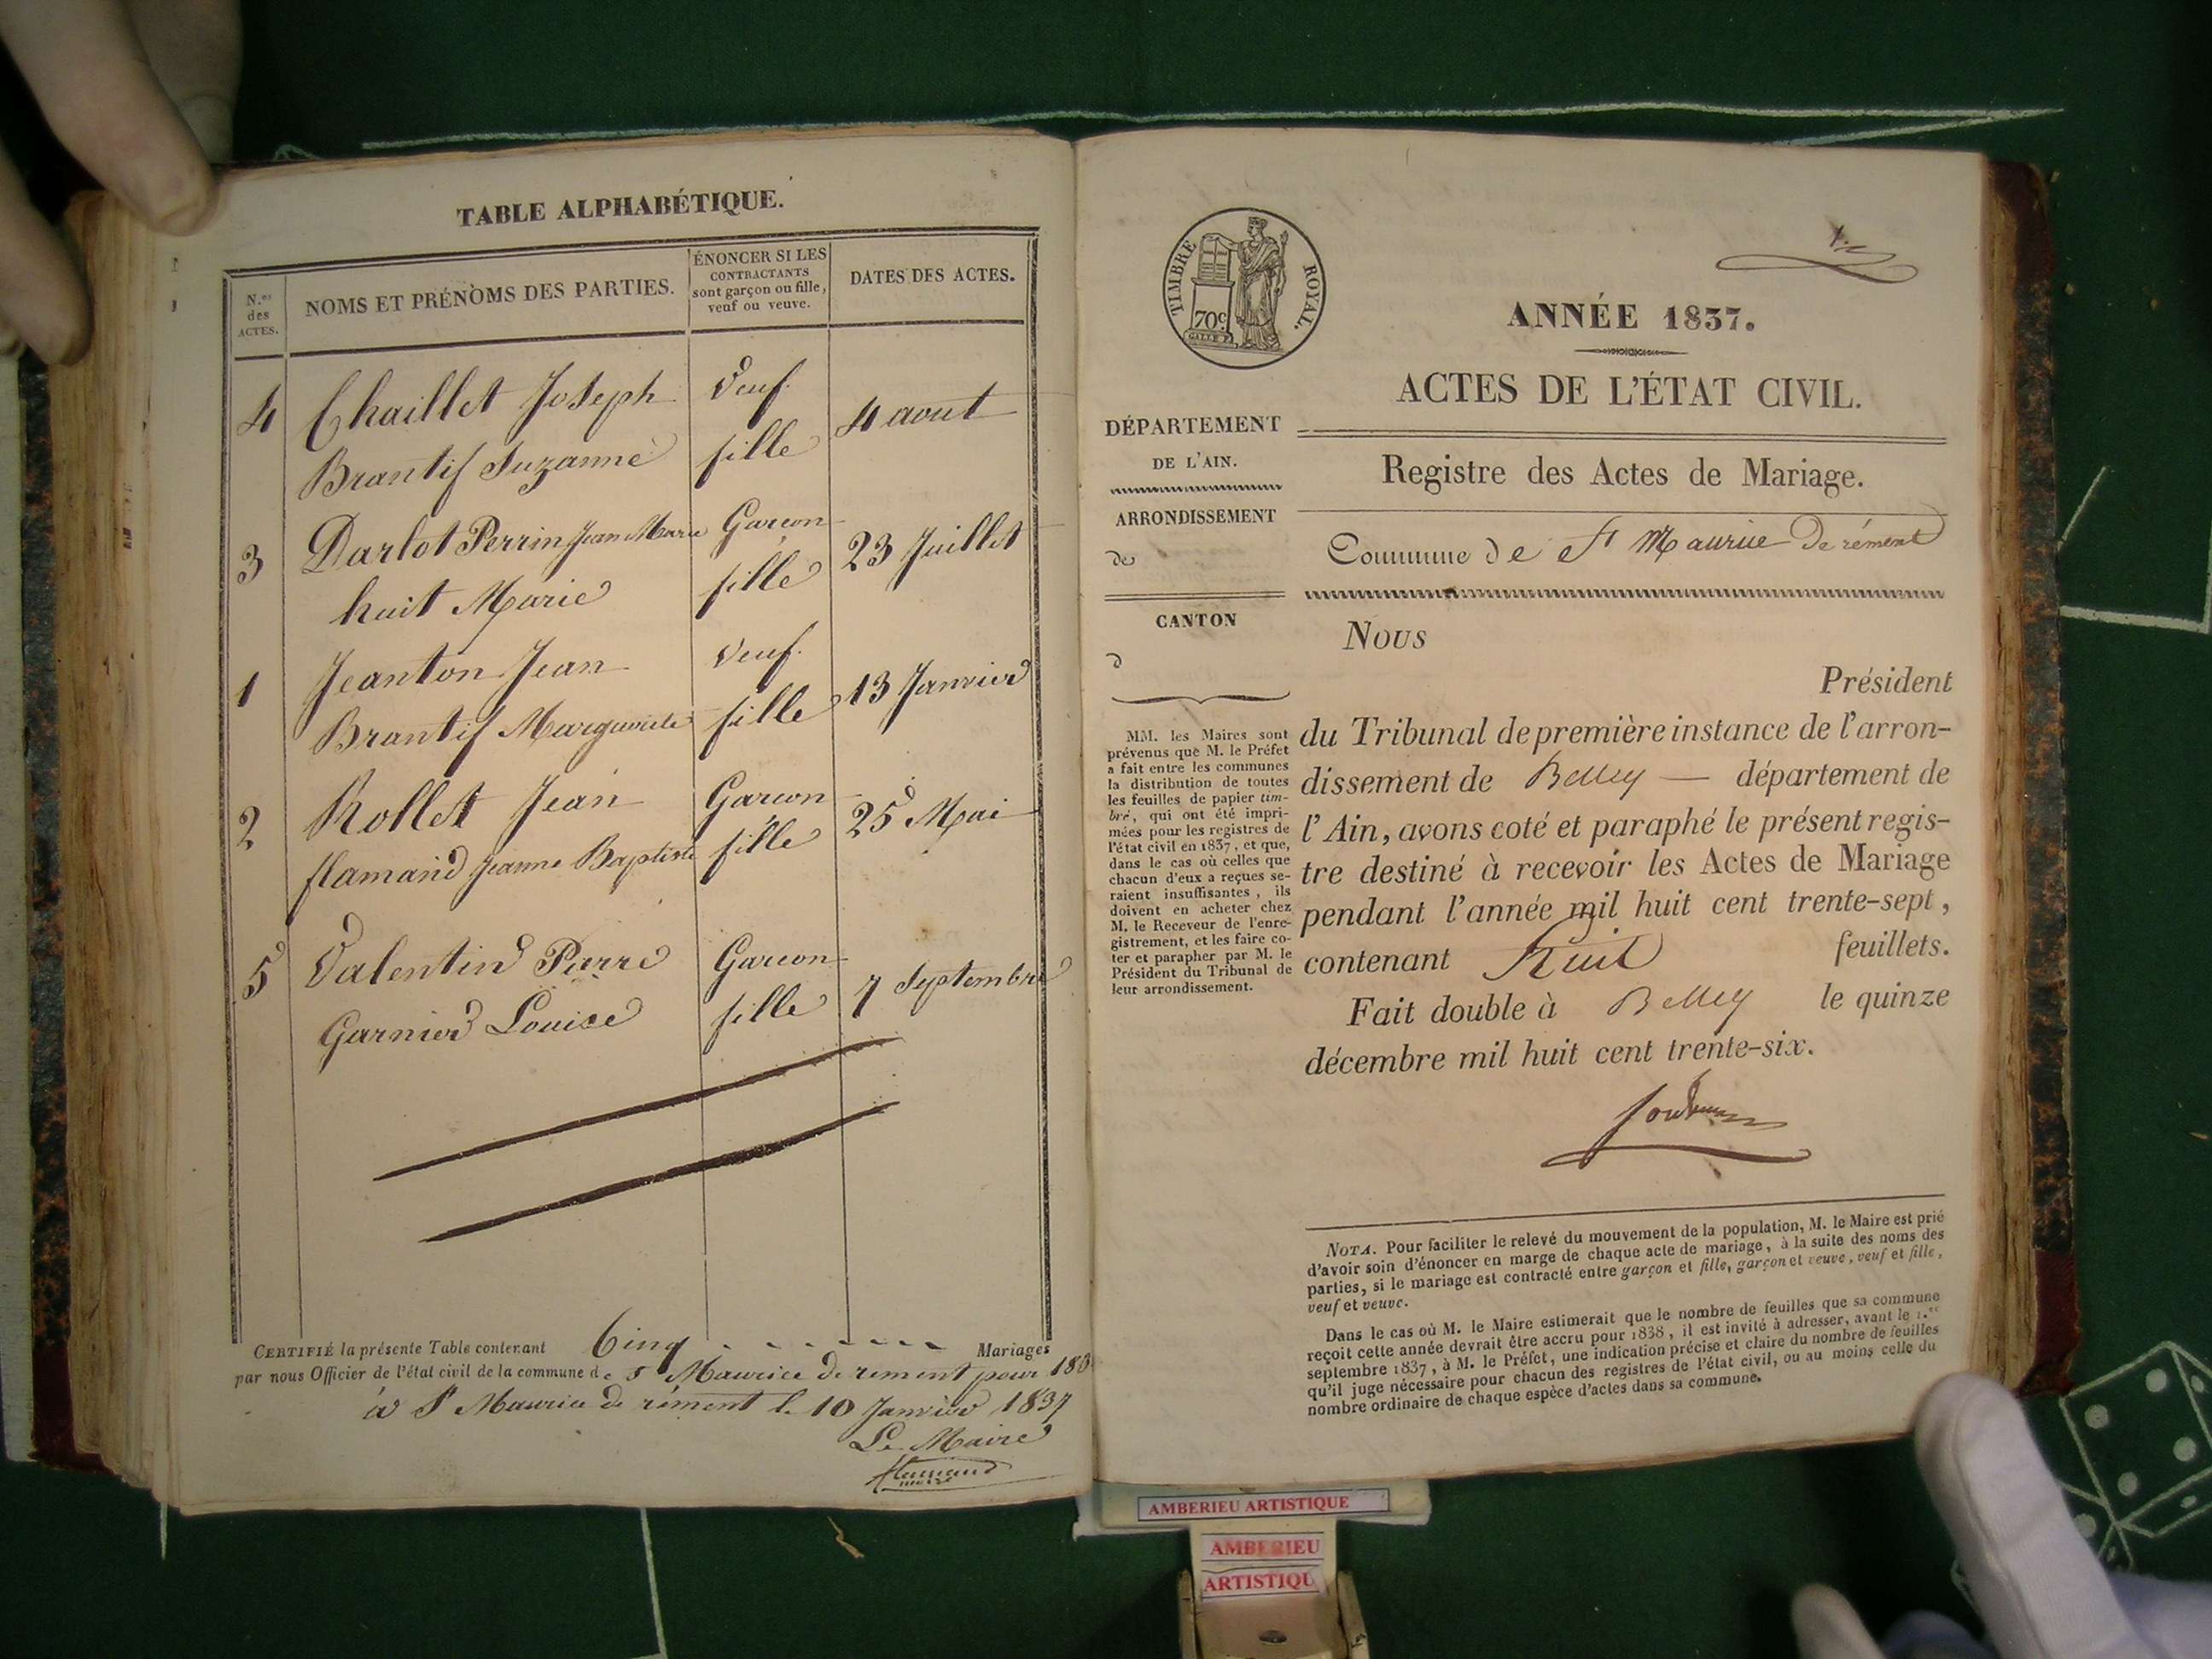 TABLE ALPHABÉTIQUE.
N.os
des
ACTES.
NOMS ET PRÉNOMS DES PARTIES.
ÉNONCER SI LES
CONTRACTANTS
sont garçon ou fille,
veuf ou veuve.
DATES DES ACTES.
4 Chaillet Joseph veuf 4 aout
Brantif Suzanne fille
3 Darlot Perrin Jean Marie Garcon 23 Juillet
huit Marie fille
1 Jeanton Jean veuf 13 Janvier
Brantif Marguerite fille
2 Rollet Jean Garcon 25 Mai
flamand Jeanne Baptiste fille
5 Valentin Pierre Garcon 7 Septembre
Garnier Louise fille
CERTIFIÉ la présente Table contenant Cinq Mariages
par nous Officier de l'état civil de la commune de St Maurice de rement pour 183
à St Maurice de rément le 10 Janvier 1837
Le Maire
flamand
maire
TIMBRE ROYAL.
70c
GALLE F.
ANNÉE 1837.
ACTES DE L'ÉTAT CIVIL.
DÉPARTEMENT
DE L'AIN.
ARRONDISSEMENT
de
CANTON
d
Registre des Actes de Mariage.
Commune de St Maurice De rément
MM. les Maires sont
prévenus que M. le Préfet
a fait entre les communes
la distribution de toutes
les feuilles de papier tim-
bré, qui ont été impri-
mées pour les registres de
l'état civil en 1837, et que,
dans le cas où celles que
chacun d'eux a reçues se-
raient insuffisantes, ils
doivent en acheter chez
M. le Receveur de l'enre-
gistrement, et les faire co-
ter et parapher par M. le
Président du Tribunal de
leur arrondissement.
Nous
Président
du Tribunal de première instance de l'arron-
dissement de Belley — département de
l'Ain, avons coté et paraphé le présent regis-
tre destiné à recevoir les Actes de Mariage
pendant l'année mil huit cent trente-sept,
contenant huit feuillets.
Fait double à Belley le quinze
décembre mil huit cent trente-six.
NOTA. Pour faciliter le relevé du mouvement de la population, M. le Maire est prié
d'avoir soin d'énoncer en marge de chaque acte de mariage, à la suite des noms des
parties, si le mariage est contracté entre garçon et fille, garçon et veuve, veuf et fille,
veuf et veuve.
Dans le cas où M. le Maire estimerait que le nombre de feuilles que sa commune
reçoit cette année devrait être accru pour 1838, il est invité à adresser, avant le 1.er
septembre 1837, à M. le Préfet, une indication précise et claire du nombre de feuilles
qu'il juge nécessaire pour chacun des registres de l'état civil, ou au moins celle du
nombre ordinaire de chaque espèce d'actes dans sa commune.
AMBERIEU ARTISTIQUE
AMBERIEU
ARTISTIQU